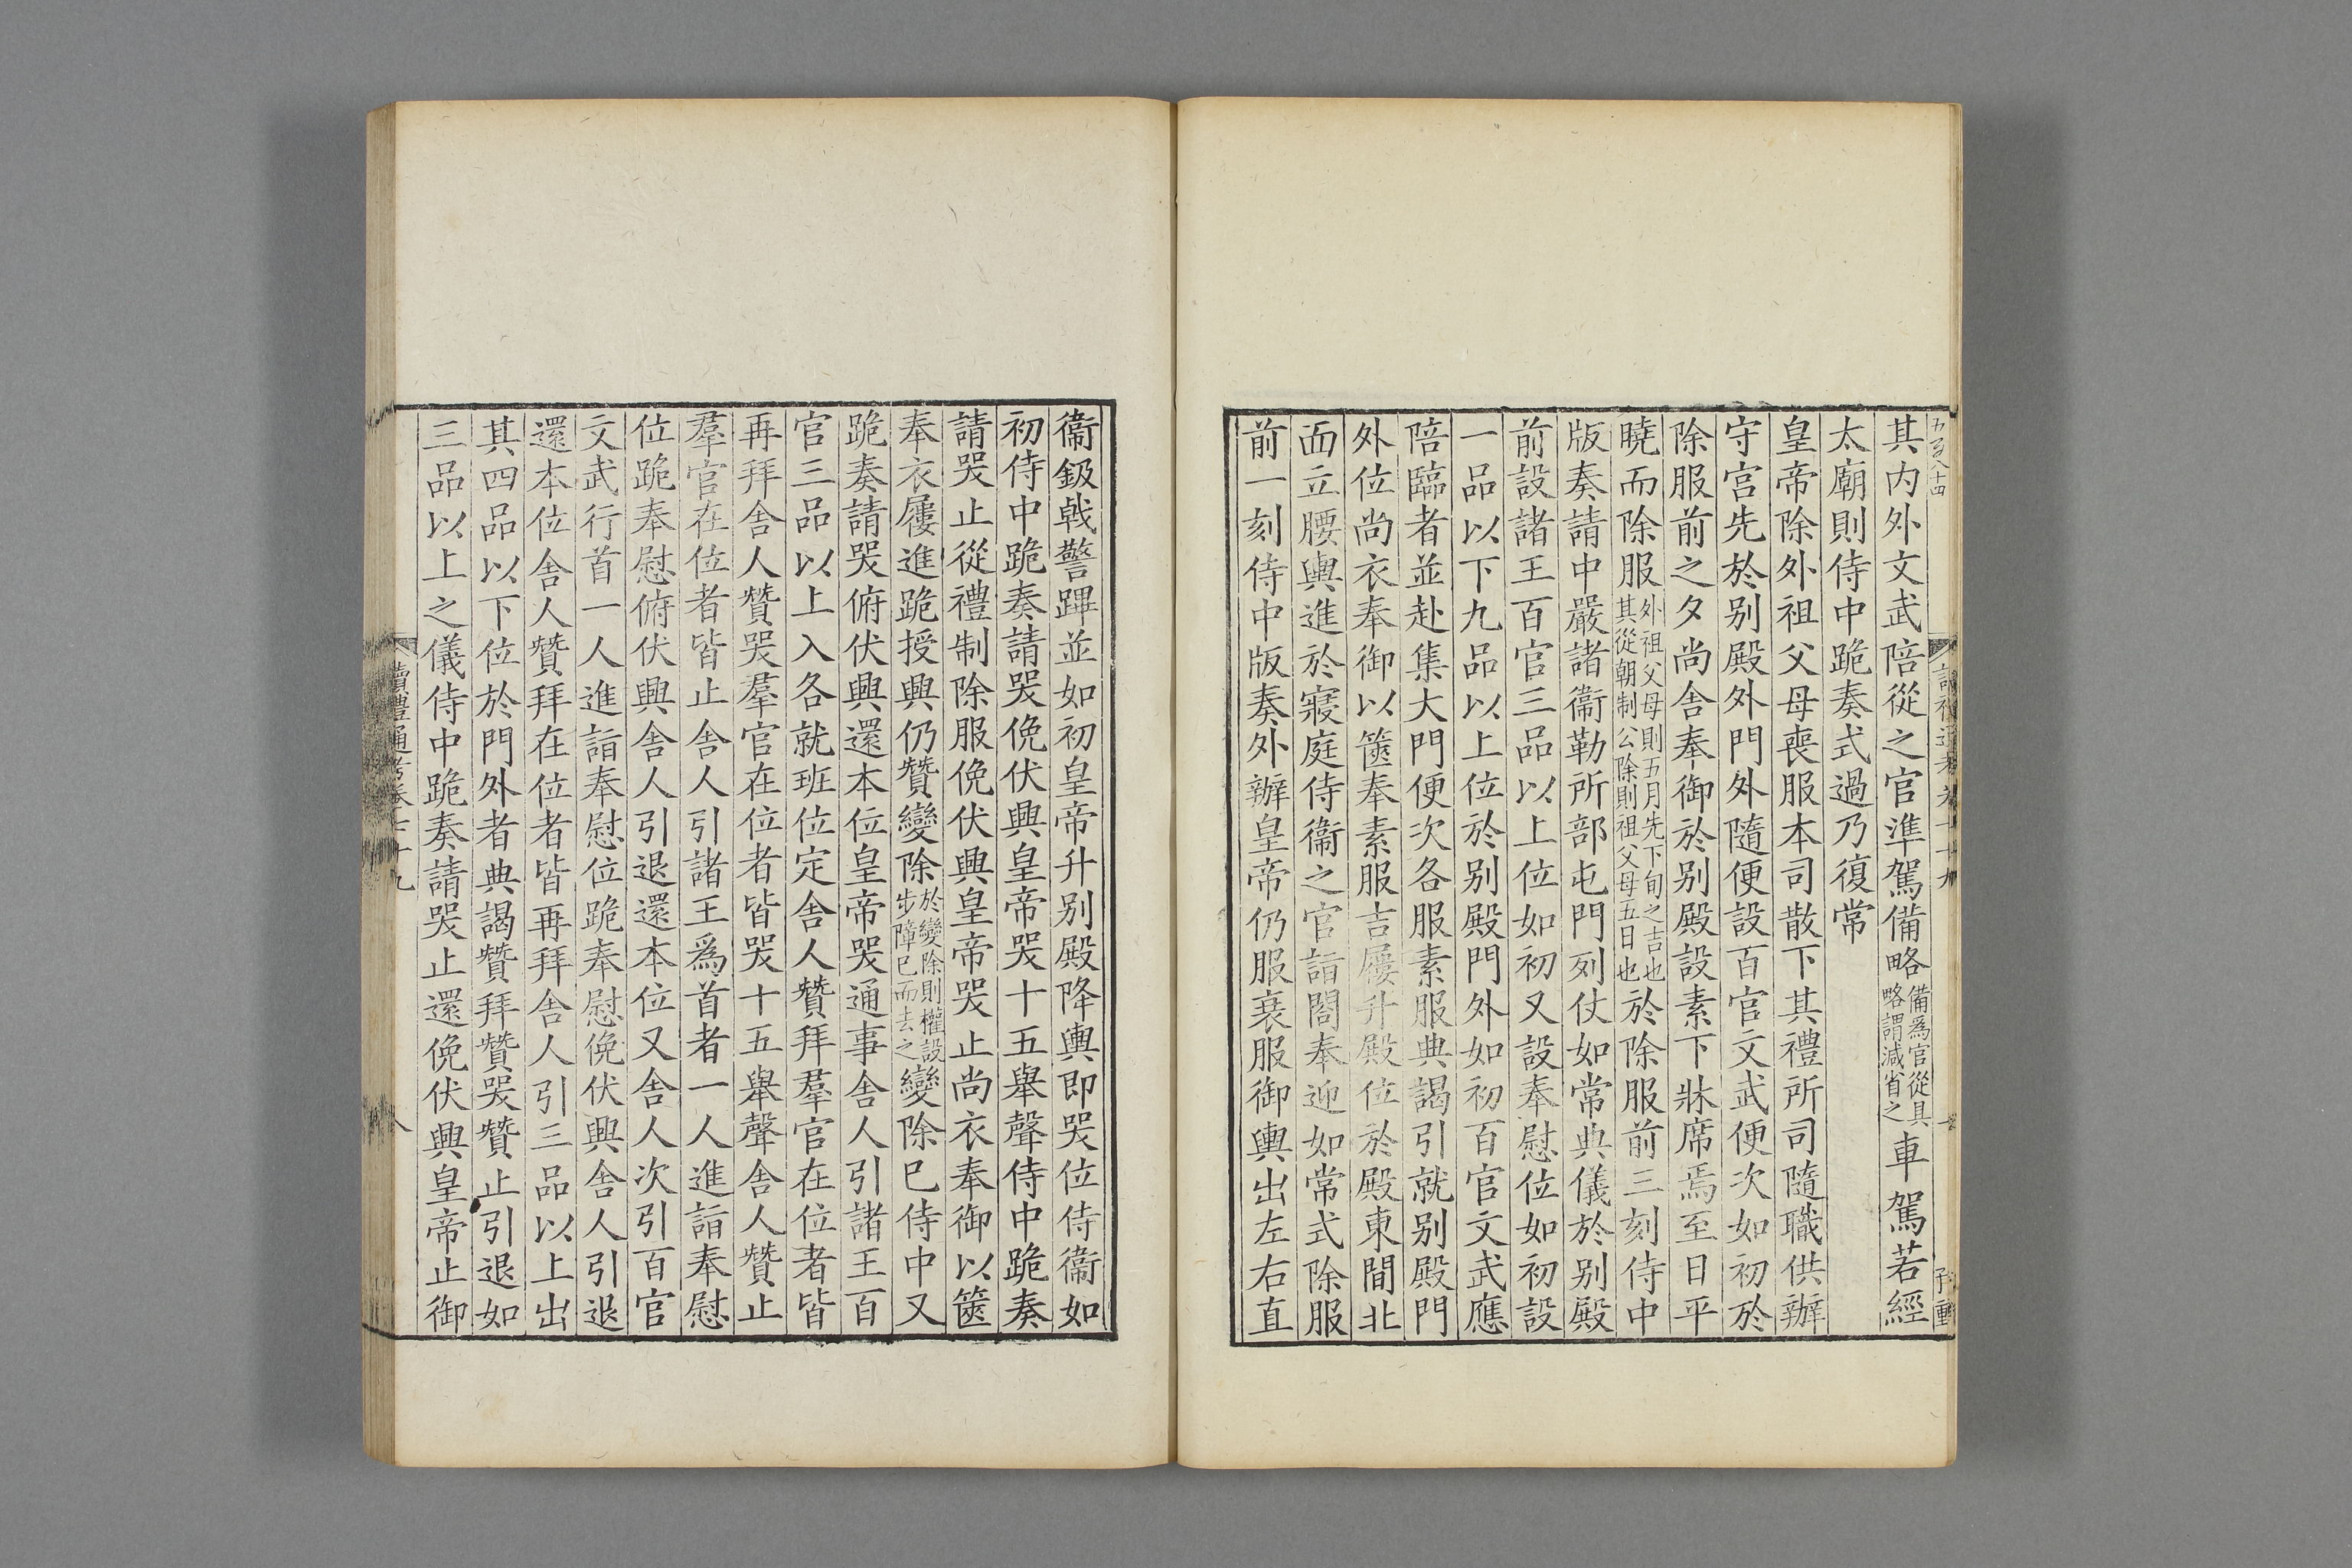 五百八十四
其内外文武陪從之官準駕備略備爲官從具略謂減省之車駕若經
太廟則侍中跪奏式過乃復常
皇帝除外祖父母喪服本司散下其禮所司隨職供辦
守宮先於别殿外門外隨便設百官文武便次如初於
除服前之夕尚舍奉御於别殿設素下牀席焉至日平
曉而除服外祖父母則五月先下旬之吉也其從朝制公除則祖父母五日也於除服前三刻侍中
版奏請中嚴諸衞勒所部屯門列仗如常典儀於别殿
前設諸王百官三品以上位如初又設奉慰位如初設
一品以下九品以上位於别殿門外如初百官文武應
陪臨者並赴集大門便次各服素服典謁引就别殿門
外位尚衣奉御以篋奉素服吉屨升殿位於殿東間北
面立腰輿進於寢庭侍衞之官詣閤奉迎如常式除服
前一刻侍中版奏外辦皇帝仍服衰服御輿出左右直
衞鈒戟警蹕並如初皇帝升别殿降輿即哭位侍衞如
初侍中跪奏請哭俛伏興皇帝哭十五舉聲侍中跪奏
請哭止從禮制除服俛伏興皇帝哭止尚衣奉御以篋
奉衣屨進跪授興仍贊變除於變除則權設步障已而去之變除已侍中又
跪奏請哭俯伏興還本位皇帝哭通事舍人引諸王百
官三品以上入各就班位定舍人贊拜羣官在位者皆
再拜舍人贊哭羣官在位者皆哭十五舉聲舍人贊止
羣官在位者皆止舍人引諸王爲首者一人進詣奉慰
位跪奉慰俯伏興舍人引退還本位又舍人次引百官
文武行首一人進詣奉慰位跪奉慰俛伏興舍人引退
還本位舍人贊拜在位者皆再拜舍人引三品以上出
其四品以下位於門外者典謁贊拜贊哭贊止引退如
三品以上之儀侍中跪奏請哭止還俛伏興皇帝止御
讀禮通考卷七十九 八